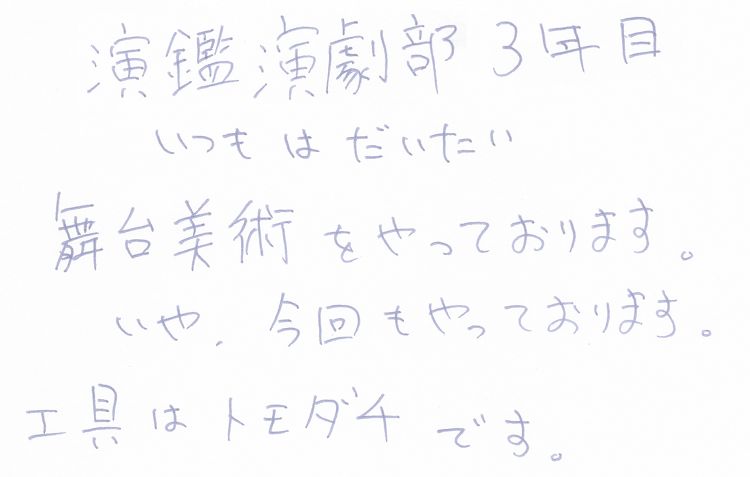 演鑑演劇部 3年目
いつもはだいたい
舞台美術をやっております。
いや、今回もやっております。
工具はトモダチです。